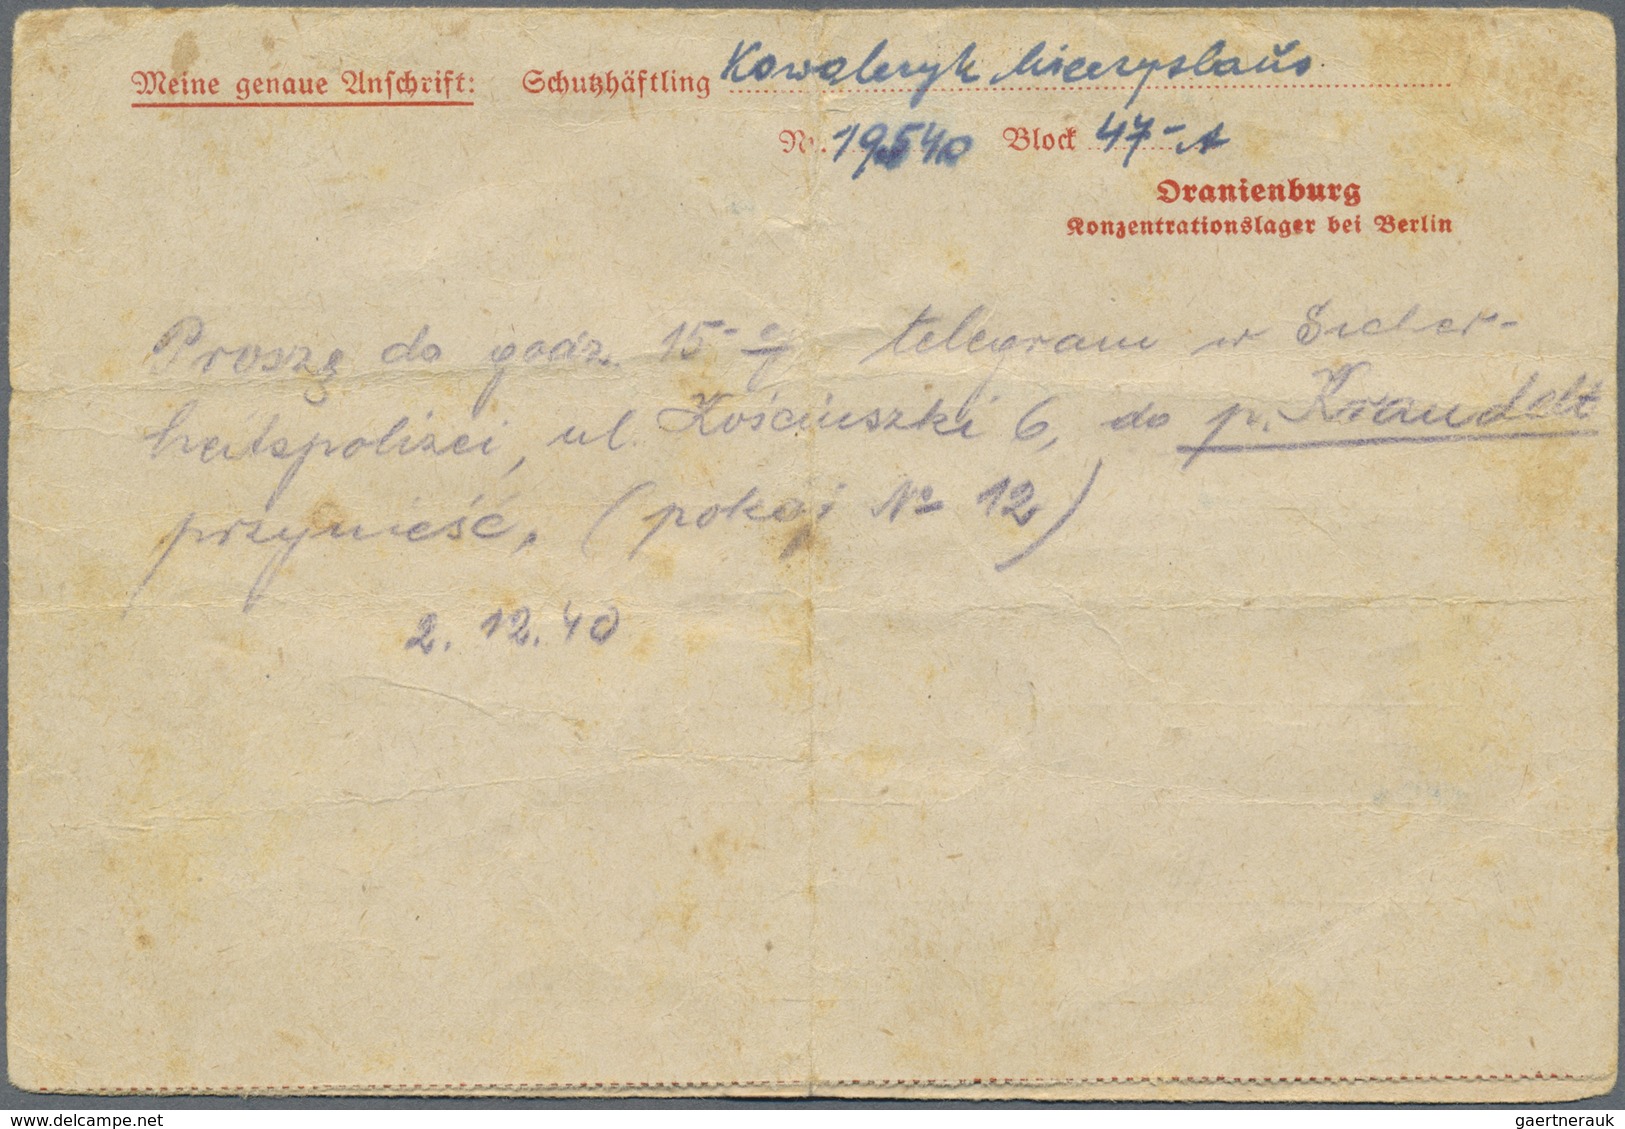 Meine genaue Anschrift: Schutzhäftling Kowalczyk Mieczyslaus
Nr. 19540 Block 47-A
Oranienburg
Konzentrationslager bei Berlin
Proszę do godz. 15-ej telegram w Sicher-
heitspolizei, ul. Kościuszki 6, do p. Kraudelt
przynieść, (pokój No 12)
2. 12. 40
gaertnerauk
www.delcampe.net